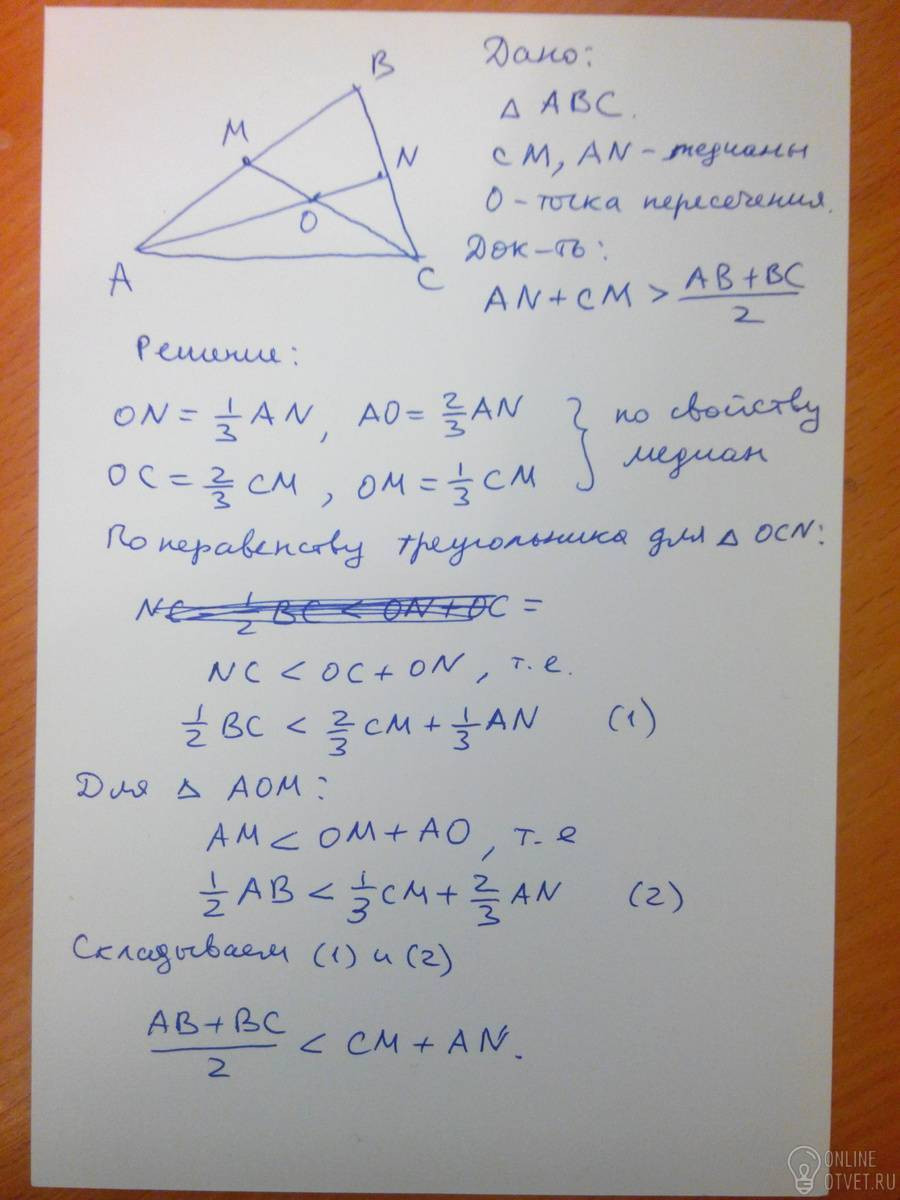 B
M
N
O
A
C
Дано:
△ ABC.
CM, AN - медианы
O - точка пересечения.
Док-ть:
AN + CM > (AB + BC)/2
Решение:
ON = 1/3 AN, AO = 2/3 AN
OC = 2/3 CM, OM = 1/3 CM
} по свойству
медиан
По неравенству треугольника для △ OCN:
NC = 1/2 BC < ON + OC =
NC < OC + ON, т.е.
1/2 BC < 2/3 CM + 1/3 AN (1)
Для △ AOM:
AM < OM + AO, т.е
1/2 AB < 1/3 CM + 2/3 AN (2)
Складываем (1) и (2)
(AB + BC)/2 < CM + AN.
ONLINE
OTVET.RU